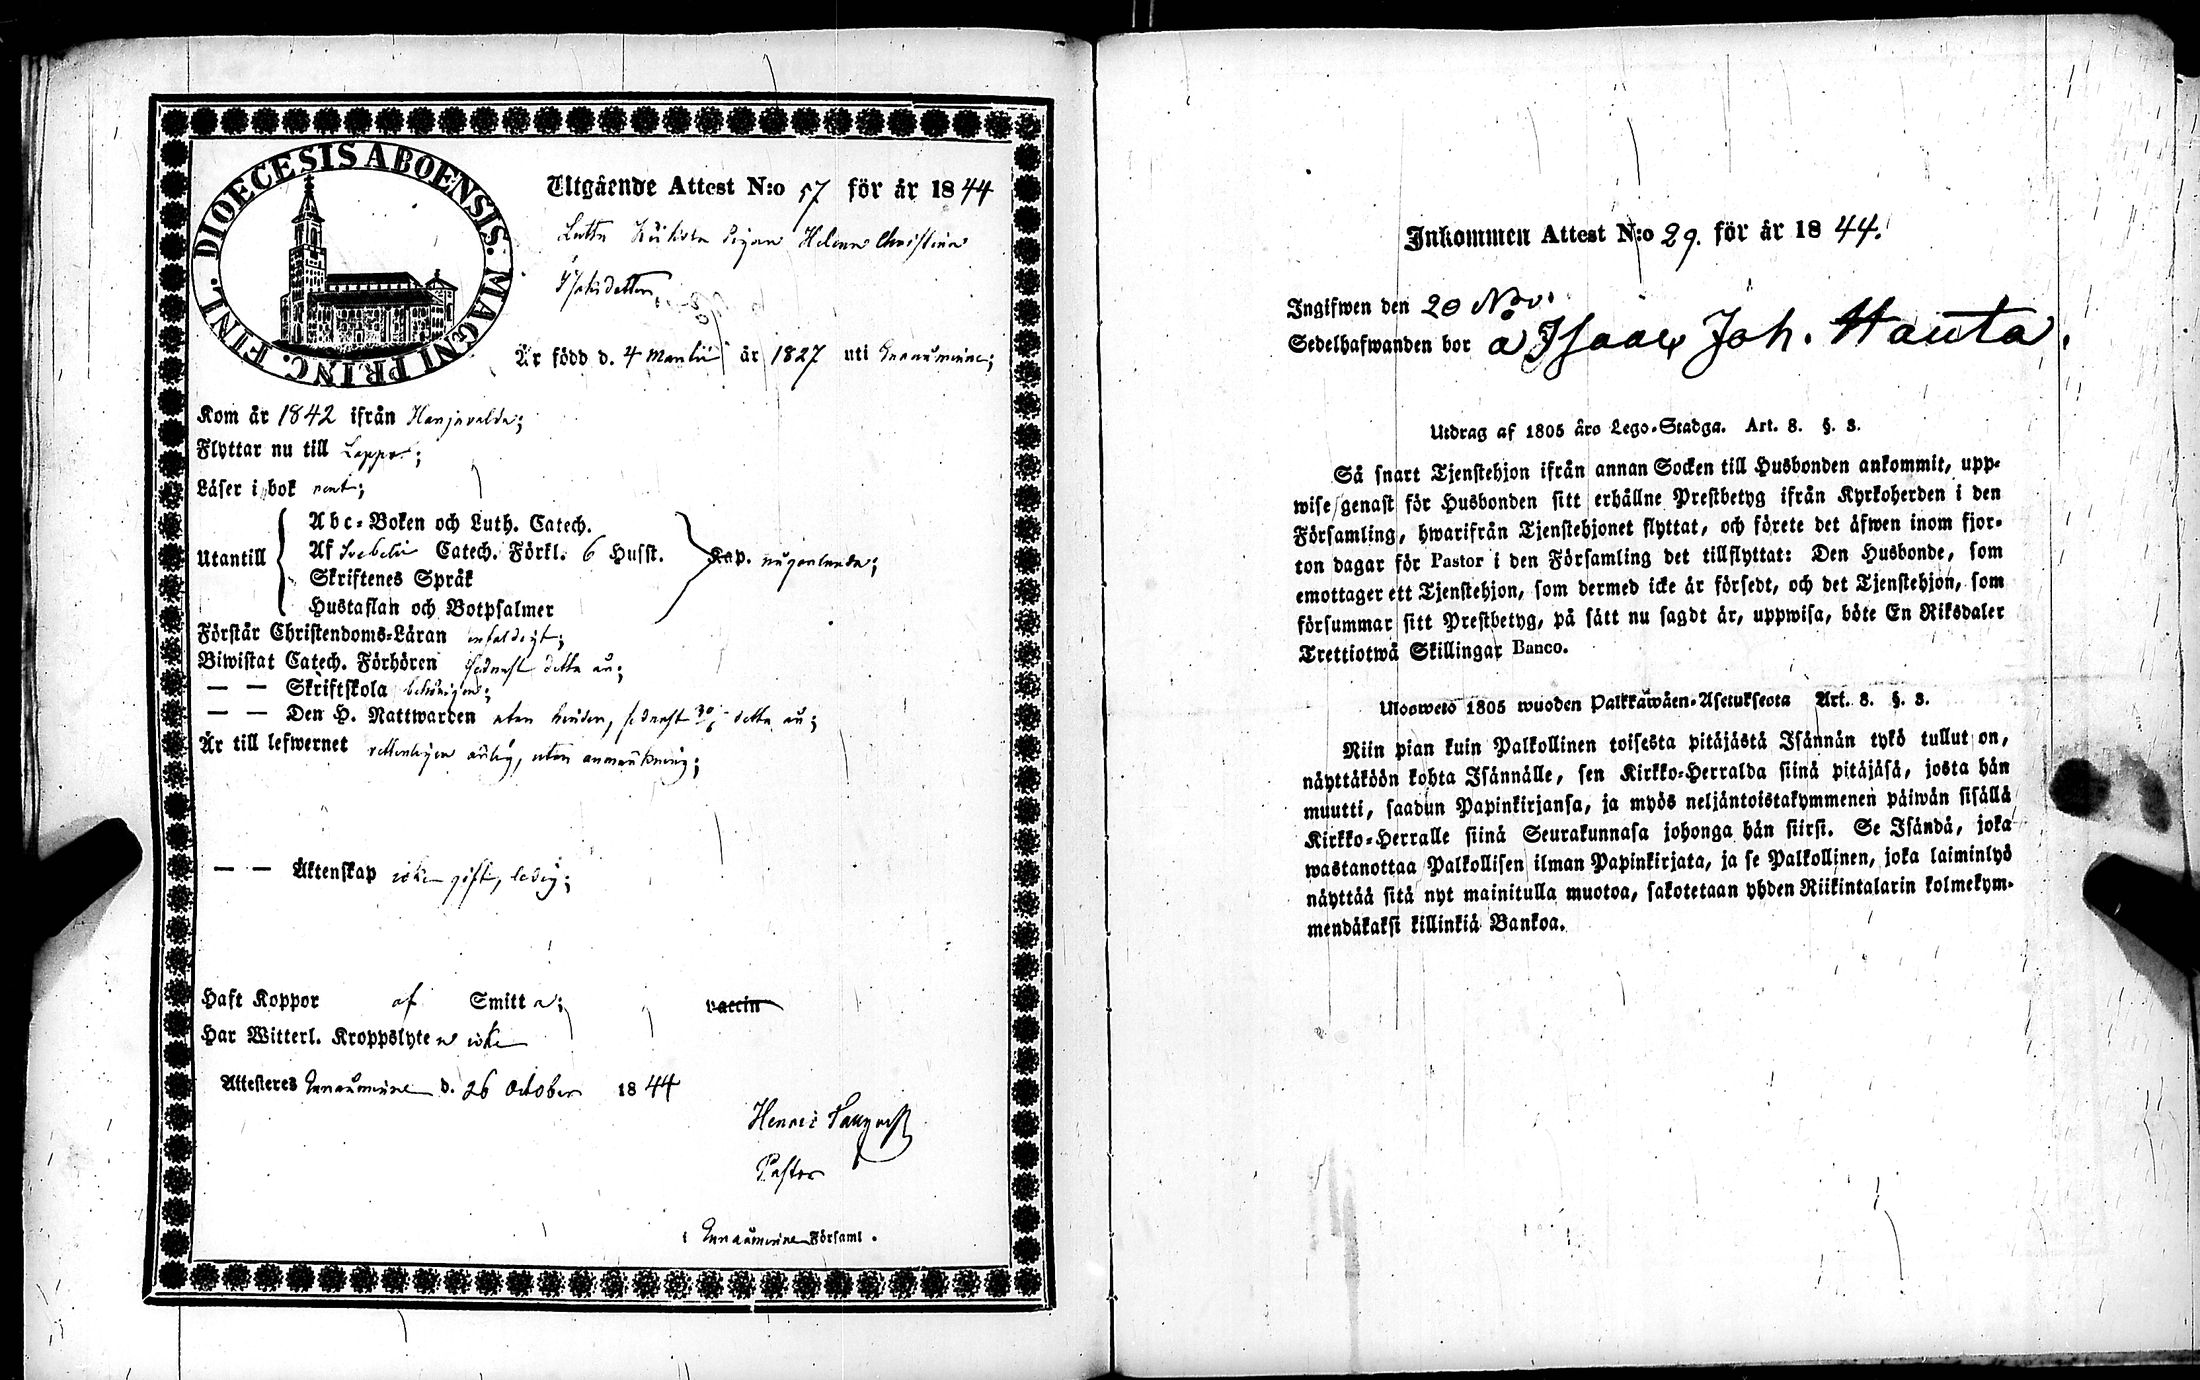 DIOECESIS ABOENSIS. MAGNI PRINC. FINL.
Utgående Attest N:o 57 för år 1844
Helena Christina
Isaksdotter,
Är född d. 4 Martii år 1827 uti Euraåminne;
Kom år 1842 ifrån Harjavalda;
Flyttar nu till Lappo;
Läser i bok rent;
Utantill
Abc-Boken och Luth. Catech.
Af Svebelii Catech. Förkl. 6 Husst.
Skriftenes Språk
Hustaflan och Botpsalmer
Kap. någorlunda;
Förstår Christendoms-Läran enfaldigt;
Biwistat Catech. Förhören sednast detta år;
— — Skriftskola behörigen;
— — Den H. Nattwarden utan hinder, sednast detta år;
Är till lefwernet ärlig, utan anmärkning;
— — Äktenskap icke gift, ledig;
Haft Koppor af Smitta; vaccin
Har Witterl. Kroppslyten icke
Attesteres Euraåminne d. 26 October 1844
Henric
Pastor
i Euraåminne Församl.
Inkommen Attest N:o 29. för år 1844.
Ingifwen den 20 Nov.
Sedelhafwanden bor å Isaac Joh. Hauta.
Utdrag af 1805 års Lego-Stadga. Art. 8. §. 3.
Så snart Tjenstehjon ifrån annan Socken till Husbonden ankommit, upp-
wise genast för Husbonden sitt erhållne Prestbetyg ifrån Kyrkoherden i den
Församling, hwarifrån Tjenstehjonet flyttat, och förete det äfwen inom fjor-
ton dagar för Pastor i den Församling det tillflyttat: Den Husbonde, som
emottager ett Tjenstehjon, som dermed icke är försedt, och det Tjenstehjon, som
försummar sitt Prestbetyg, på sätt nu sagdt är, uppwisa, böte En Riksdaler
Trettiotwå Skillingar Banco.
Ulosweto 1805 wuoden Palkkawäen-Asetuksesta Art. 8. §. 3.
Niin pian kuin Palkollinen toisesta pitäjästä Isännän tykö tullut on,
näyttäköön kohta Isännälle, sen Kirkko-Herralda siinä pitäjäsä, josta hän
muutti, saadun Papinkirjansa, ja myös neljäntoistakymmenen päiwän sisällä
Kirkko-Herralle siinä Seurakunnasa johonga hän siirsi. Se Isändä, joka
wastanottaa Palkollisen ilman Papinkirjata, ja se Palkollinen, joka laiminlyö
näyttää sitä nyt mainitulla muotoa, sakotetaan yhden Riikintalarin kolmekym-
mendäkaksi killinkiä Bankoa.